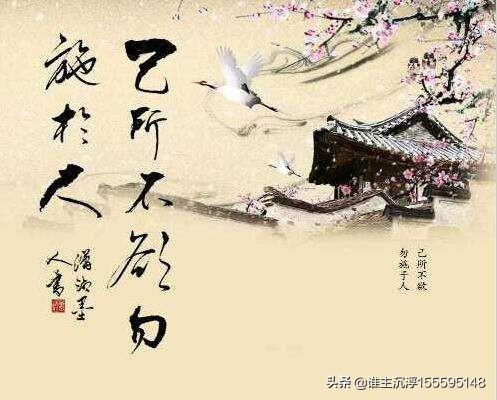 己所不欲勿
施於人
潇墨
人書
己所不欲
勿施于人
头条 @谁主沉浮155595148